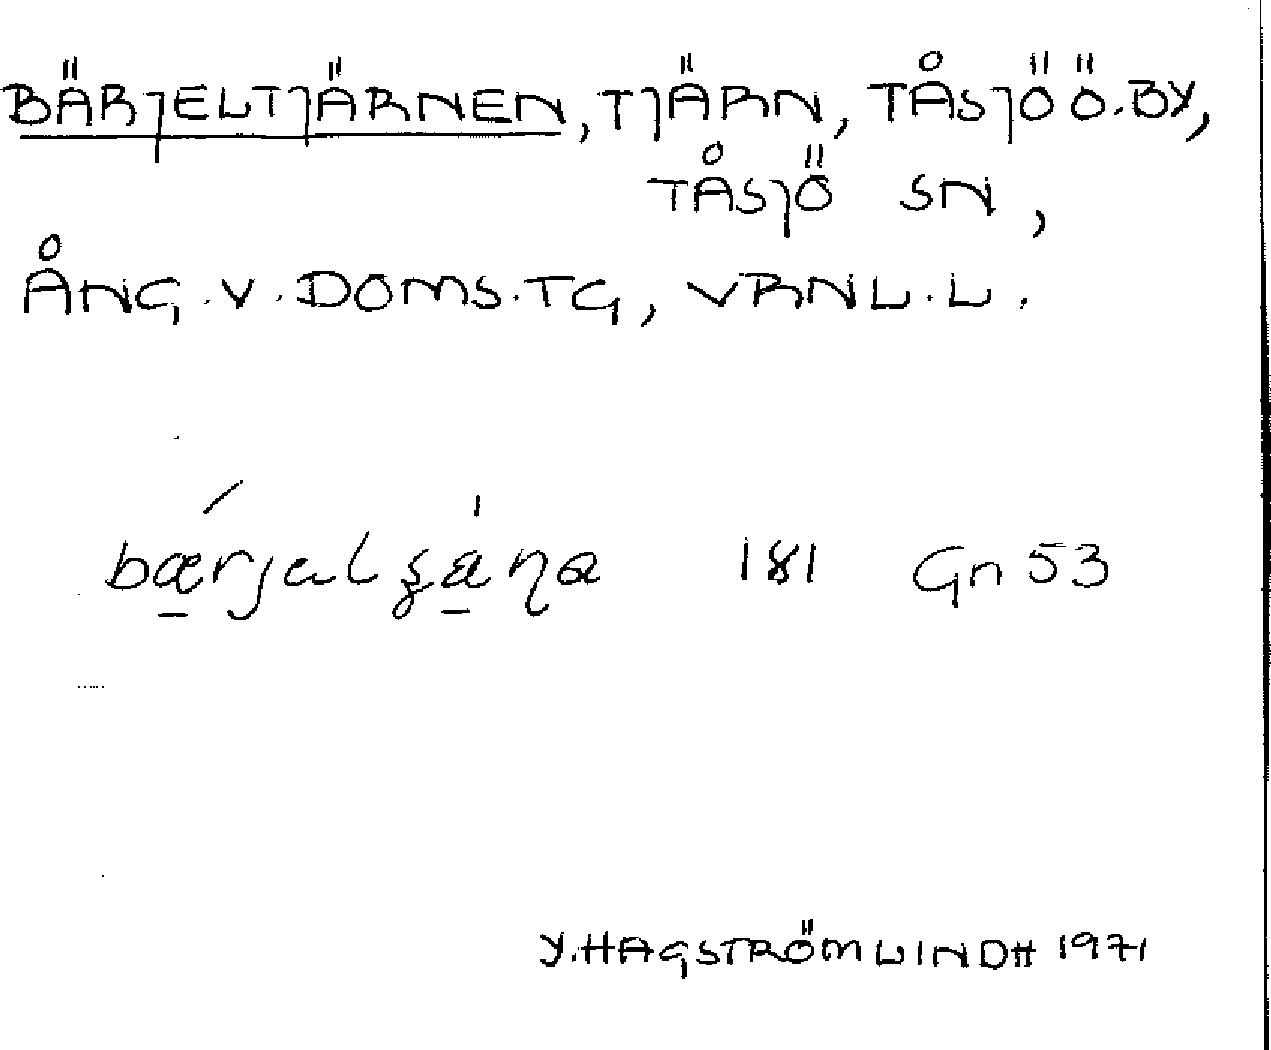 BÄRJELTJÄRNEN, TJÄRN, TÅSJÖ Ö.BY,
TÅSJÖ SN,
ÅNG.V.DOMS.TG, VRNL.L.
181 Gn 53
Y.HAGSTRÖMLINDH 1971